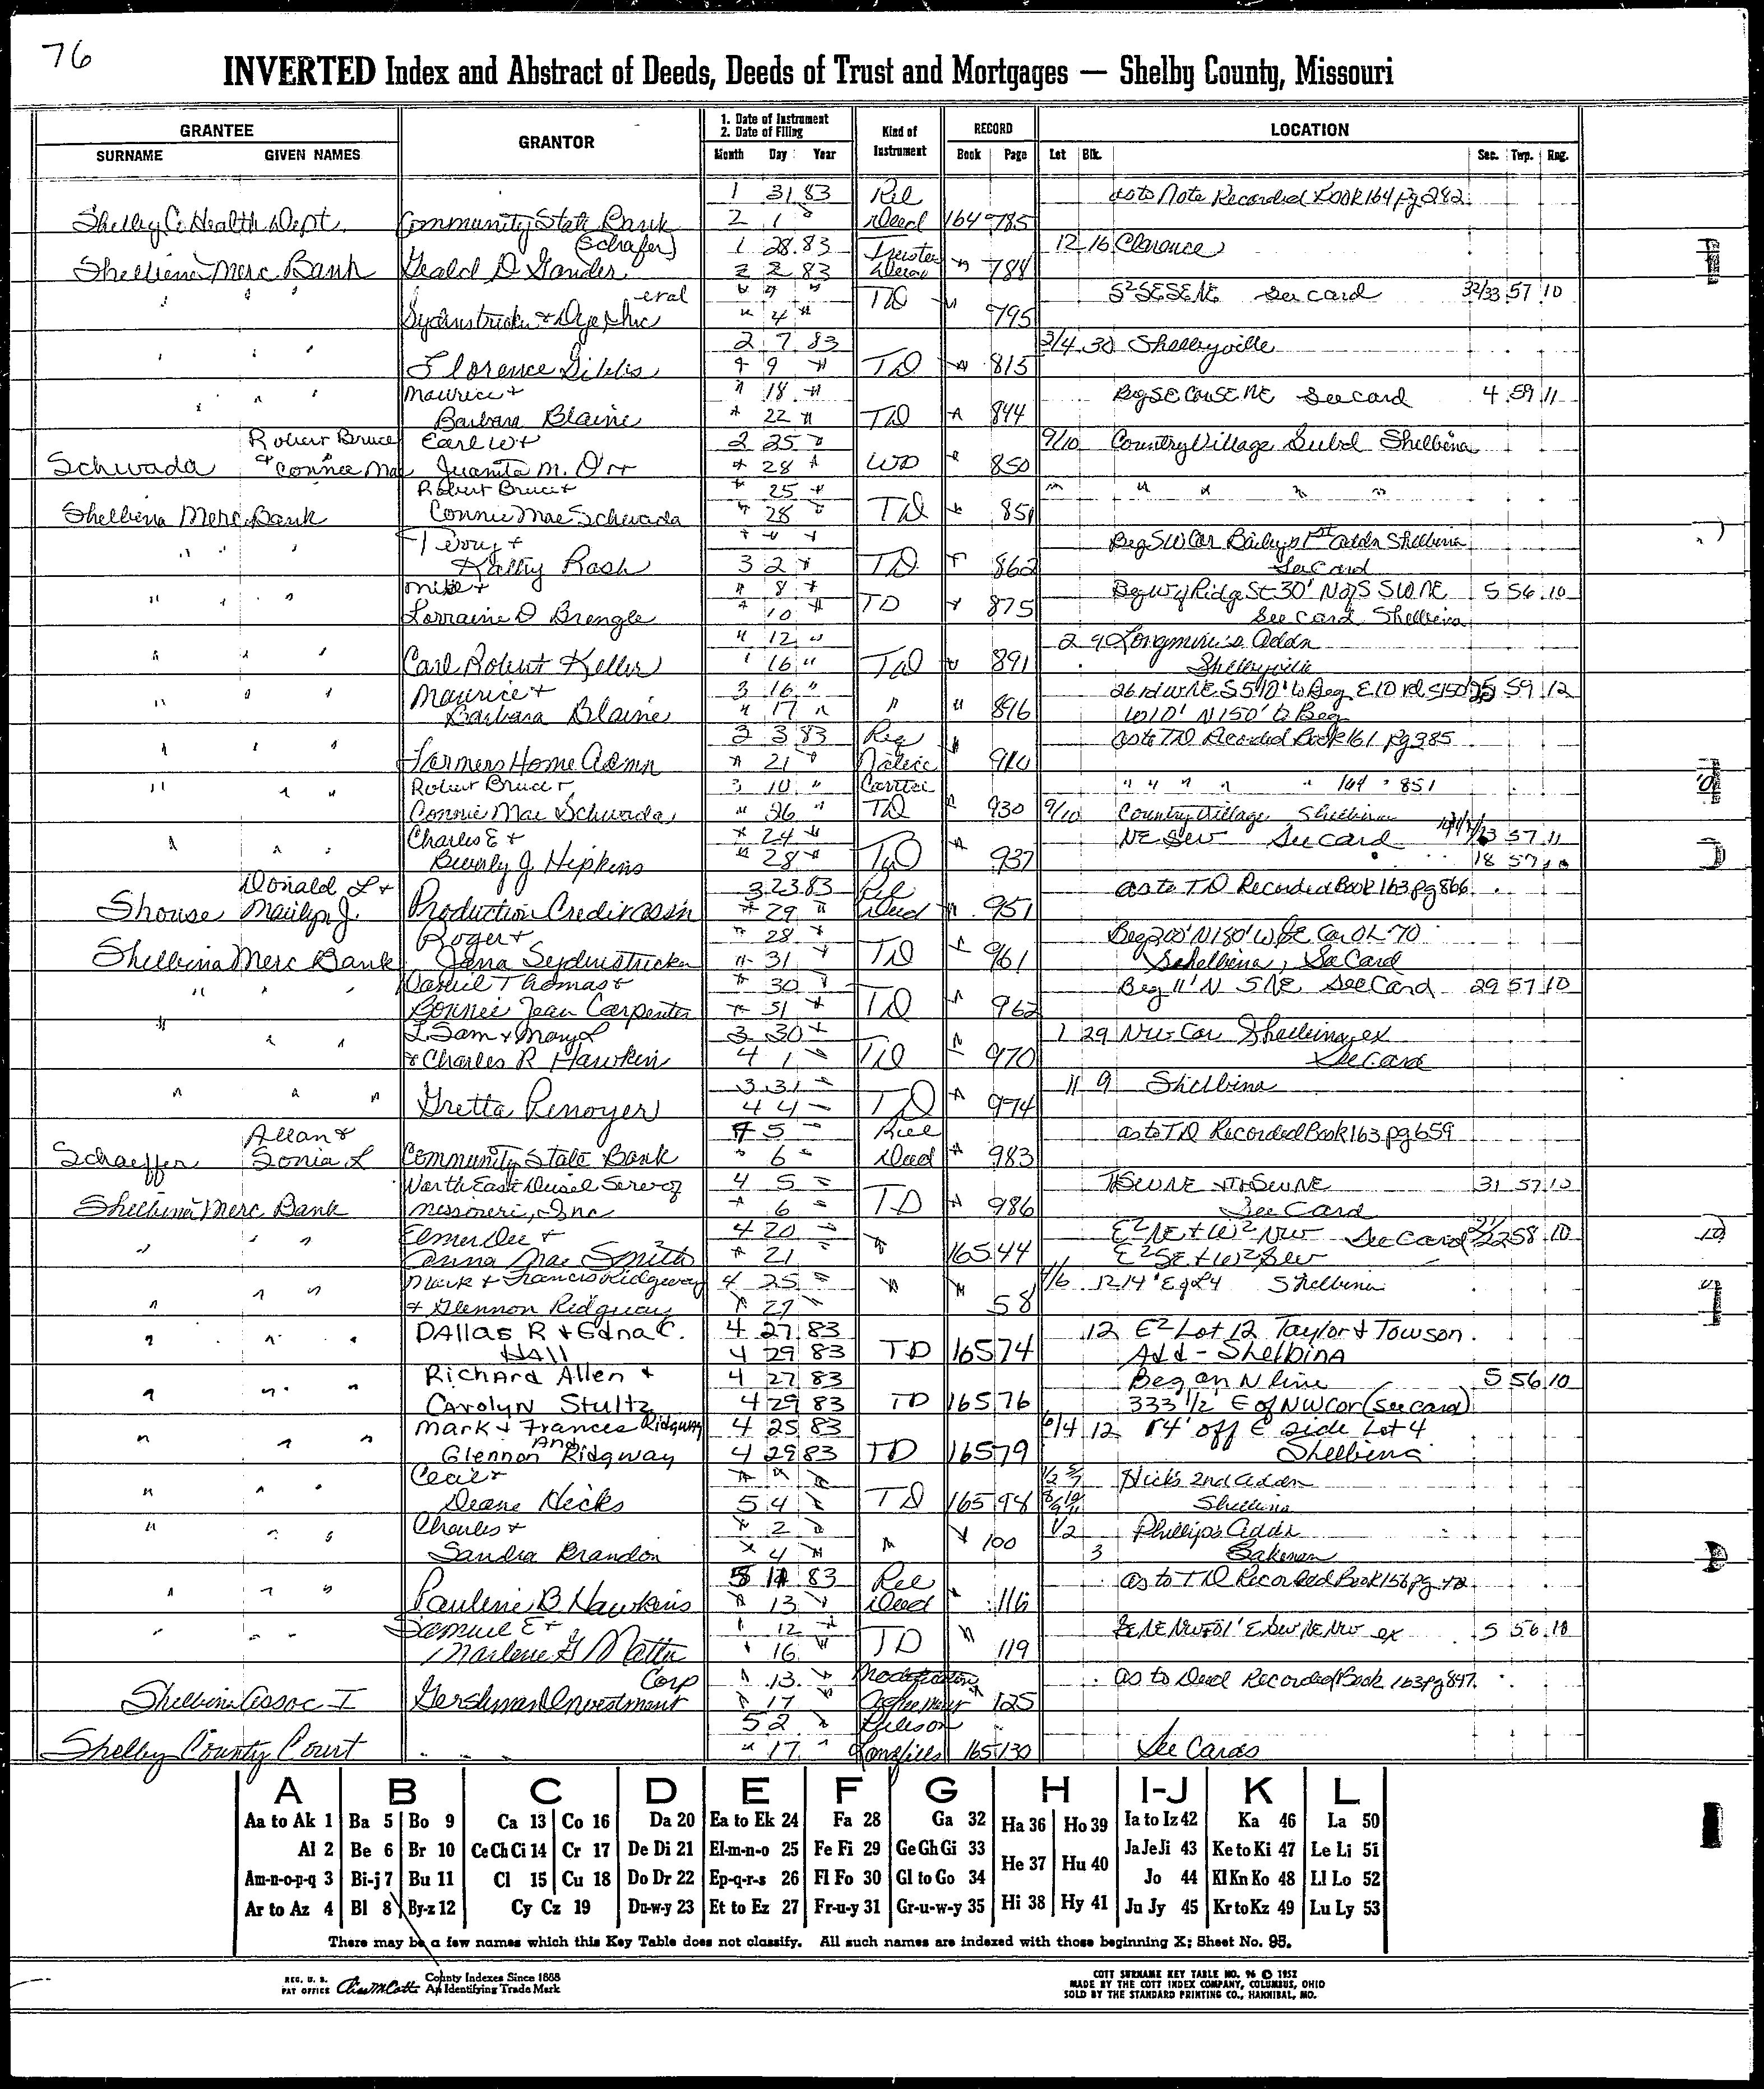 76
INVERTED Index and Abstract of Deeds, Deeds of Trust and Mortgages — Shelby County, Missouri
GRANTEE
SURNAME GIVEN NAMES
GRANTOR
1. Date of Instrument
2. Date of Filing
Month Day Year
Kind of Instrument
RECORD
Book Page
LOCATION
Lot Blk. Sec. Twp. Rng.
1 31 83 Rel as to Note Recorded Book 164 pg 282
Shelby Co Health Dept. Community State Bank 2 1 " Deed 164 785
(Schafer) 1 28 83 Trustee 12 16 Clarence
Shelbina Merc. Bank Gerald D Gander 2 2 83 Deed " 788
" " eral " " " TD " S2SESENE See card 32/33 57 10
Sydenstricker & Dye Inc " 4 " 795
2 7 83 3/4 30 Shelbyville
" " " Florence Gibbs " 9 " TD " 815
Maurice & " 18 " Beg SE Cor SE NE See card 4 59 11
" " " Barbara Blaine " 22 " TD " 844
Robert Bruce Earl W & 2 25 " 9/10 Country Village Subd Shelbina
Schwada & Connie Mae Juanita M. Orr " 28 " WD " 850
Robert Bruce & " 25 " " " " " "
Shelbina Merc. Bank Connie Mae Schwada " 28 " TD " 851
Terry & " " " Beg SW Cor Bailey's 1st Addn Shelbina
" " " Kathy Rash 3 2 " TD " 862 See Card
Mike & " 8 " Beg W of Ridge St 30' N of S SW NE 5 56 10
" " " Lorraine D Brengle " 10 " TD " 875 See Card Shelbina
" 12 " 2 9 Longmire's Addn
" " " Carl Robert Keller " 16 " TD " 891 Shelbyville
Maurice & 3 16 " 26 rd W NE S 570' to Beg E 10 rd S 150 25 59 12
" " " Barbara Blaine " 17 " " " 896 W 10' N 150' to Beg
2 3 83 Req as to TD Recorded Book 161 pg 385
" " " Farmers Home Admn " 21 " Notice " 910
" " " Robert Bruce & 3 10 " " " " " " 164 " 851
Connie Mae Schwada " 26 " TD " 930 9/10 Country Village Shelbina
Charles E & " 24 " NE SW See card 57 11
" " " Beverly J Hipkins " 28 " TD " 937 18 57 10
Donald L & 3 23 83 Rel as to TD Recorded Book 163 pg 866
Shouse Marilyn J. Production Credit Assn " 29 " Deed " 951
Roger & " 28 " Beg 200' N 180' W SE Cor OL 70
Shelbina Merc Bank Jana Sydenstricker " 31 " TD " 961 Shelbina, See Card
Daniel Thomas & " 30 " Beg 11' N S NE See Card 29 57 10
" " " Bonnie Jean Carpenter " 31 " TD " 962
L Sam & Mary L 3 30 " 1 29 NW Cor Shelbina ex
" " " & Charles R Hawkins 4 1 " TD " 970 See Card
3 31 " 11 9 Shelbina
" " " Gretta Penoyer 4 4 " TD " 974
Allan & 4 5 " Rel as to TD Recorded Book 163 pg 659
Schaeffer Sonia L Community State Bank " 6 " Deed " 983
North East Diesel Serv of 4 5 " 31 57 10
Shelbina Merc. Bank Missouri, Inc " 6 " TD " 986 See Card
Elmer Dee & 4 20 " E2 NE & W2 NW See Card 21/22 58 10
" " " Anna Mae Smith " 21 " " 165 44 E2 SE & W2 SW
Mark & Francis Ridgway 4 25 " " " 12 14' E of L4 Shelbina
" " " & Glennon Ridgway " 27 " 58
Dallas R & Edna C. 4 27 83 12 E2 Lot 12 Taylor & Towson
" " " Hall 4 29 83 TD 165 74 Add - Shelbina
Richard Allen & 4 27 83 Beg on N line 5 56 10
" " " Carolyn Stultz 4 29 83 TD 165 76 333 1/2 E of NW Cor (see card)
Mark & Frances Ridgway 4 25 83 6/4 12 14' off E side Lot 4
" " " And Glennon Ridgway 4 29 83 TD 165 79 Shelbina
Cecil & " " " Hicks 2nd Addn
" " " Deane Hicks 5 4 " TD 165 94 Shelbina
Charles & " 2 " 1/2 Phillips Addn
" " " Sandra Brandon " 4 " " " 100 3 Lakenan
5 11 83 Rel as to TD Recorded Book 156 pg 42
" " " Pauline B Hawkins " 13 " Deed " 116
Samuel E & " 12 " ex 5 56 10
" " " Marlene G Matter " 16 " TD " 119
Corp " 13 " Modification as to Deed Recorded Book 163 pg 847
Shelbina Assoc I Gershman Investment " 17 " Agreement " 125
5 2 "
Shelby County Court " " " " 17 " Landfills 165 130 See Cards
A B C D E F G H I-J K L
Aa to Ak 1 Ba 5 Bo 9 Ca 13 Co 16 Da 20 Ea to Ek 24 Fa 28 Ga 32 Ha 36 Ho 39 Ia to Iz 42 Ka 46 La 50
Al 2 Be 6 Br 10 Ce Ch Ci 14 Cr 17 De Di 21 El-m-n-o 25 Fe Fi 29 Ge Gh Gi 33 He 37 Hu 40 Ja Je Ji 43 Ke to Ki 47 Le Li 51
Am-n-o-p-q 3 Bi-j 7 Bu 11 Cl 15 Cu 18 Do Dr 22 Ep-q-r-s 26 Fl Fo 30 Gl to Go 34 Jo 44 Kl Kn Ko 48 Ll Lo 52
Ar to Az 4 Bl 8 By-z 12 Cy Cz 19 Du-w-y 23 Et to Ez 27 Fr-u-y 31 Gr-u-w-y 35 Hi 38 Hy 41 Ju Jy 45 Kr to Kz 49 Lu Ly 53
There may be a few names which this Key Table does not classify. All such names are indexed with those beginning X; Sheet No. 95.
REG. U. S. PAT OFFICE County Indexes Since 1888 An Identifying Trade Mark
COTT SURNAME KEY TABLE NO. 96 © 1952
MADE BY THE COTT INDEX COMPANY, COLUMBUS, OHIO
SOLD BY THE STANDARD PRINTING CO., HANNIBAL, MO.